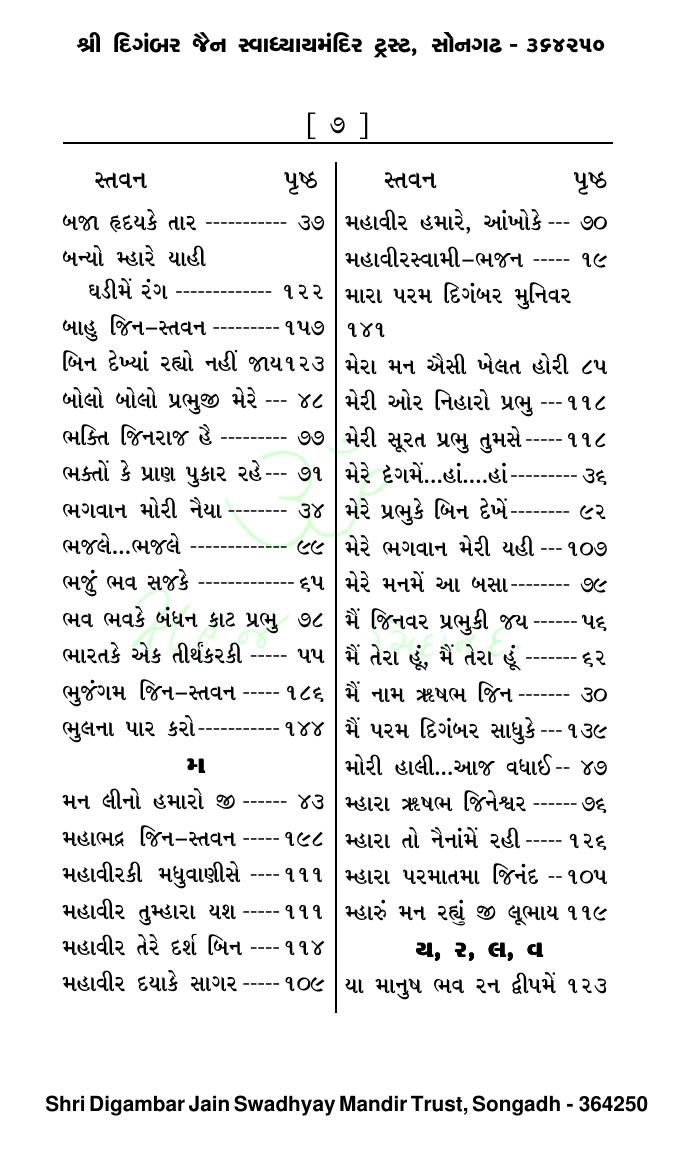 શ્રી દિગંબર જૈન સ્વાધ્યાયમંદિર ટ્રસ્ટ, સોનગઢ - ૩૬૪૨૫૦
[ ૭ ]
સ્તવન પૃષ્ઠ
બજા હૃદયકે તાર ----------- ૩૭
બન્યો મ્હારે યાહી
ઘડીમેં રંગ ------------- ૧૨૨
બાહુ જિન–સ્તવન --------- ૧૫૭
બિન દેખ્યાં રહ્યો નહીં જાય૧૨૩
બોલો બોલો પ્રભુજી મેરે --- ૪૮
ભક્તિ જિનરાજ હૈ --------- ૭૭
ભક્તોં કે પ્રાણ પુકાર રહે--- ૭૧
ભગવાન મોરી નૈયા -------- ૩૪
ભજલે...ભજલે ------------- ૯૯
ભજું ભવ સજકે -------------૬૫
ભવ ભવકે બંધન કાટ પ્રભુ ૭૮
ભારતકે એક તીર્થંકરકી ----- ૫૫
ભુજંગમ જિન–સ્તવન ----- ૧૮૬
ભુલના પાર કરો-----------૧૪૪
મ
મન લીનો હમારો જી ------ ૪૩
મહાભદ્ર જિન–સ્તવન -----૧૯૮
મહાવીરકી મધુવાણીસે ----૧૧૧
મહાવીર તુમ્હારા યશ -----૧૧૧
મહાવીર તેરે દર્શ બિન ----૧૧૪
મહાવીર દયાકે સાગર -----૧૦૯
સ્તવન પૃષ્ઠ
મહાવીર હમારે, આંખોકે --- ૭૦
મહાવીરસ્વામી–ભજન ----- ૧૯
મારા પરમ દિગંબર મુનિવર
૧૪૧
મેરા મન ઐસી ખેલત હોરી ૮૫
મેરી ઓર નિહારો પ્રભુ ---૧૧૮
મેરી સૂરત પ્રભુ તુમસે-----૧૧૮
મેરે દગમેં...હાં....હાં--------- ૩૬
મેરે પ્રભુકે બિન દેખેં-------- ૯૨
મેરે ભગવાન મેરી યહી ---૧૦૭
મેરે મનમેં આ બસા-------- ૭૯
મૈં જિનવર પ્રભુકી જય ------૫૬
મૈં તેરા હૂં, મૈં તેરા હૂં -------૬૨
મૈં નામ ઋષભ જિન ------- ૩૦
મૈં પરમ દિગંબર સાધુકે ---૧૩૯
મોરી હાલી...આજ વધાઈ-- ૪૭
મ્હારા ઋષભ જિનેશ્વર ------૭૬
મ્હારા તો નૈનાંમેં રહી -----૧૨૬
મ્હારા પરમાતમા જિનંદ --૧૦૫
મ્હારું મન રહ્યું જી લૂભાય ૧૧૯
ય, ર, લ, વ
યા માનુષ ભવ રન દ્વીપમેં ૧૨૩
Shri Digambar Jain Swadhyay Mandir Trust, Songadh - 364250